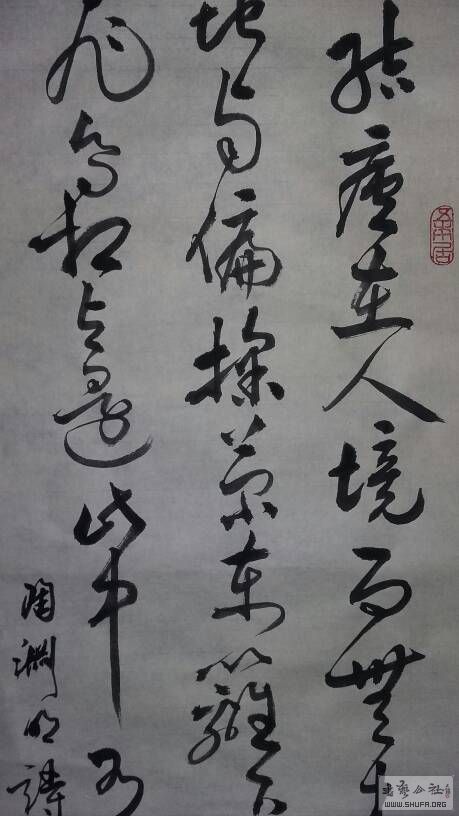 結廬在人境而無
地自偏採菊東籬下
飛鳥相與還此中有
陶淵明詩
書藝公社
WWW.SHUFA.ORG